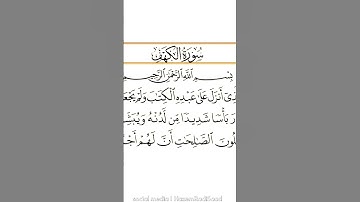 سُورَةُ الكَهْفِ
بِسْمِ اللَّهِ الرَّحْمَٰنِ الرَّحِيمِ
أَنزَلَ عَلَىٰ عَبْدِهِ الْكِتَابَ وَلَمْ يَجْعَل
بَأْسًا شَدِيدًا مِّن لَّدُنْهُ وَيُبَشِّ
لُونَ الصَّالِحَاتِ أَنَّ لَهُمْ أَجْ
social media |